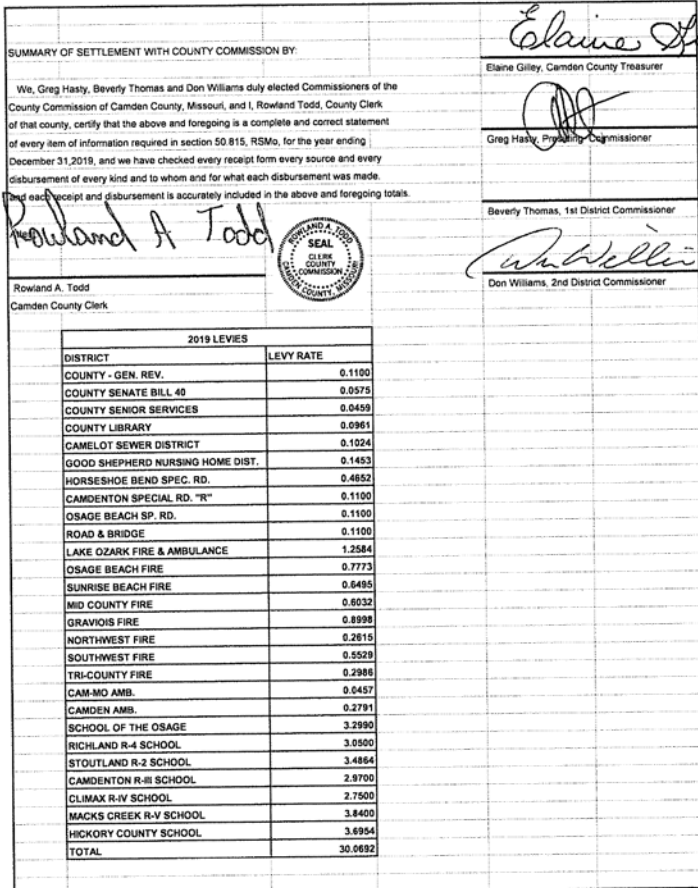 SUMMARY OF SETTLEMENT WITH COUNTY COMMISSION BY:
We, Greg Hasty, Beverly Thomas and Don Williams duly elected Commissioners of the
County Commission of Camden County, Missouri, and I, Rowland Todd, County Clerk
of that county, certify that the above and foregoing is a complete and correct statement
of every item of information required in section 50.815, RSMo, for the year ending
December 31,2019, and we have checked every receipt form every source and every
disbursement of every kind and to whom and for what each disbursement was made.
and each receipt and disbursement is accurately included in the above and foregoing totals.
Elaine
Elaine Gilley, Camden County Treasurer
Greg Hasty, Presiding Commissioner
Beverly Thomas, 1st District Commissioner
Don Williams, 2nd District Commissioner
Rowland A Todd
ROWLAND A. TODD
SEAL
CLERK
COUNTY
COMMISSION
CAMDEN COUNTY, MISSOURI
Rowland A. Todd
Camden County Clerk
2019 LEVIES
DISTRICT LEVY RATE
COUNTY - GEN. REV. 0.1100
COUNTY SENATE BILL 40 0.0575
COUNTY SENIOR SERVICES 0.0459
COUNTY LIBRARY 0.0961
CAMELOT SEWER DISTRICT 0.1024
GOOD SHEPHERD NURSING HOME DIST. 0.1453
HORSESHOE BEND SPEC. RD. 0.4652
CAMDENTON SPECIAL RD. "R" 0.1100
OSAGE BEACH SP. RD. 0.1100
ROAD & BRIDGE 0.1100
LAKE OZARK FIRE & AMBULANCE 1.2584
OSAGE BEACH FIRE 0.7773
SUNRISE BEACH FIRE 0.6495
MID COUNTY FIRE 0.6032
GRAVIOIS FIRE 0.8998
NORTHWEST FIRE 0.2615
SOUTHWEST FIRE 0.5529
TRI-COUNTY FIRE 0.2986
CAM-MO AMB. 0.0457
CAMDEN AMB. 0.2791
SCHOOL OF THE OSAGE 3.2990
RICHLAND R-4 SCHOOL 3.0500
STOUTLAND R-2 SCHOOL 3.4864
CAMDENTON R-III SCHOOL 2.9700
CLIMAX R-IV SCHOOL 2.7500
MACKS CREEK R-V SCHOOL 3.8400
HICKORY COUNTY SCHOOL 3.6954
TOTAL 30.0692